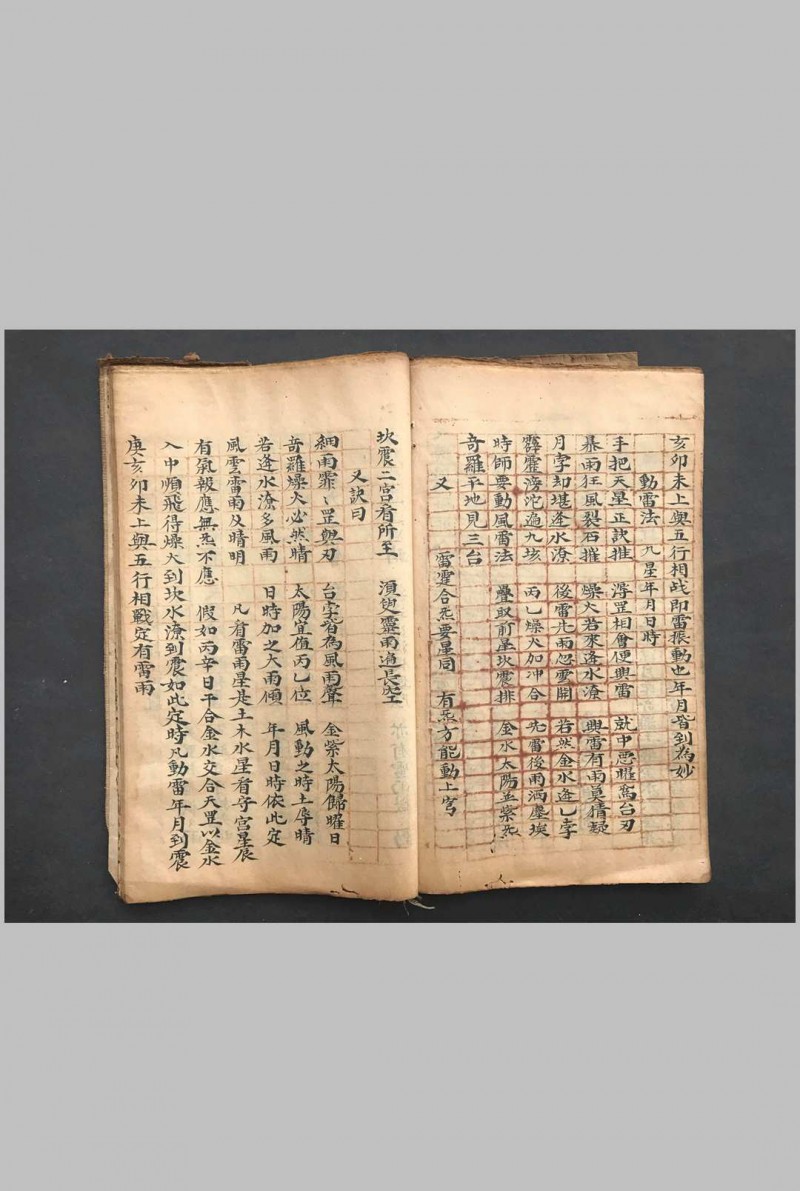 亥卯未上與五行相战即雷振動也年月皆到為妙
動雷法 九星年月日時
手把天星正訣推 浮罡相會便興雷 就中惡曜為台刃
暴雨狂風裂石摧 燥火若來逢水潦 興雷有雨莫猜疑
月孛却堪逢水潦 後雷先雨忽雲開 若然金水逢乚孛
霹靂滂沱遍九垓 丙乚燥火加冲合 先雷後雨洒塵埃
時師要動風雷法 疊取前星坎震排 金水太陽並紫炁
奇羅平地見三台
又 雷霆合炁要星同 有炁方能動上穹
坎震二宮看所至 須臾靈雨遍長空
又訣曰
細雨霏〻罡與刃 台孛皆為風雨聲 金紫太陽歸曜日
奇羅燥火必然晴 太陽宜值丙乚位 風動之時土辱晴
若逢水潦多風雨 日時加之大雨傾 年月日時依此定
風雲雷雨及晴明 凡看雷雨星是土木水星看守宮星辰
有氣報應無炁不應 假如丙辛日干合金水交合天罡以金水
入中順飛得燥火到坎水潦到震如此定時凡動雷年月到震
庚亥卯未上與五行相戰定有雷雨